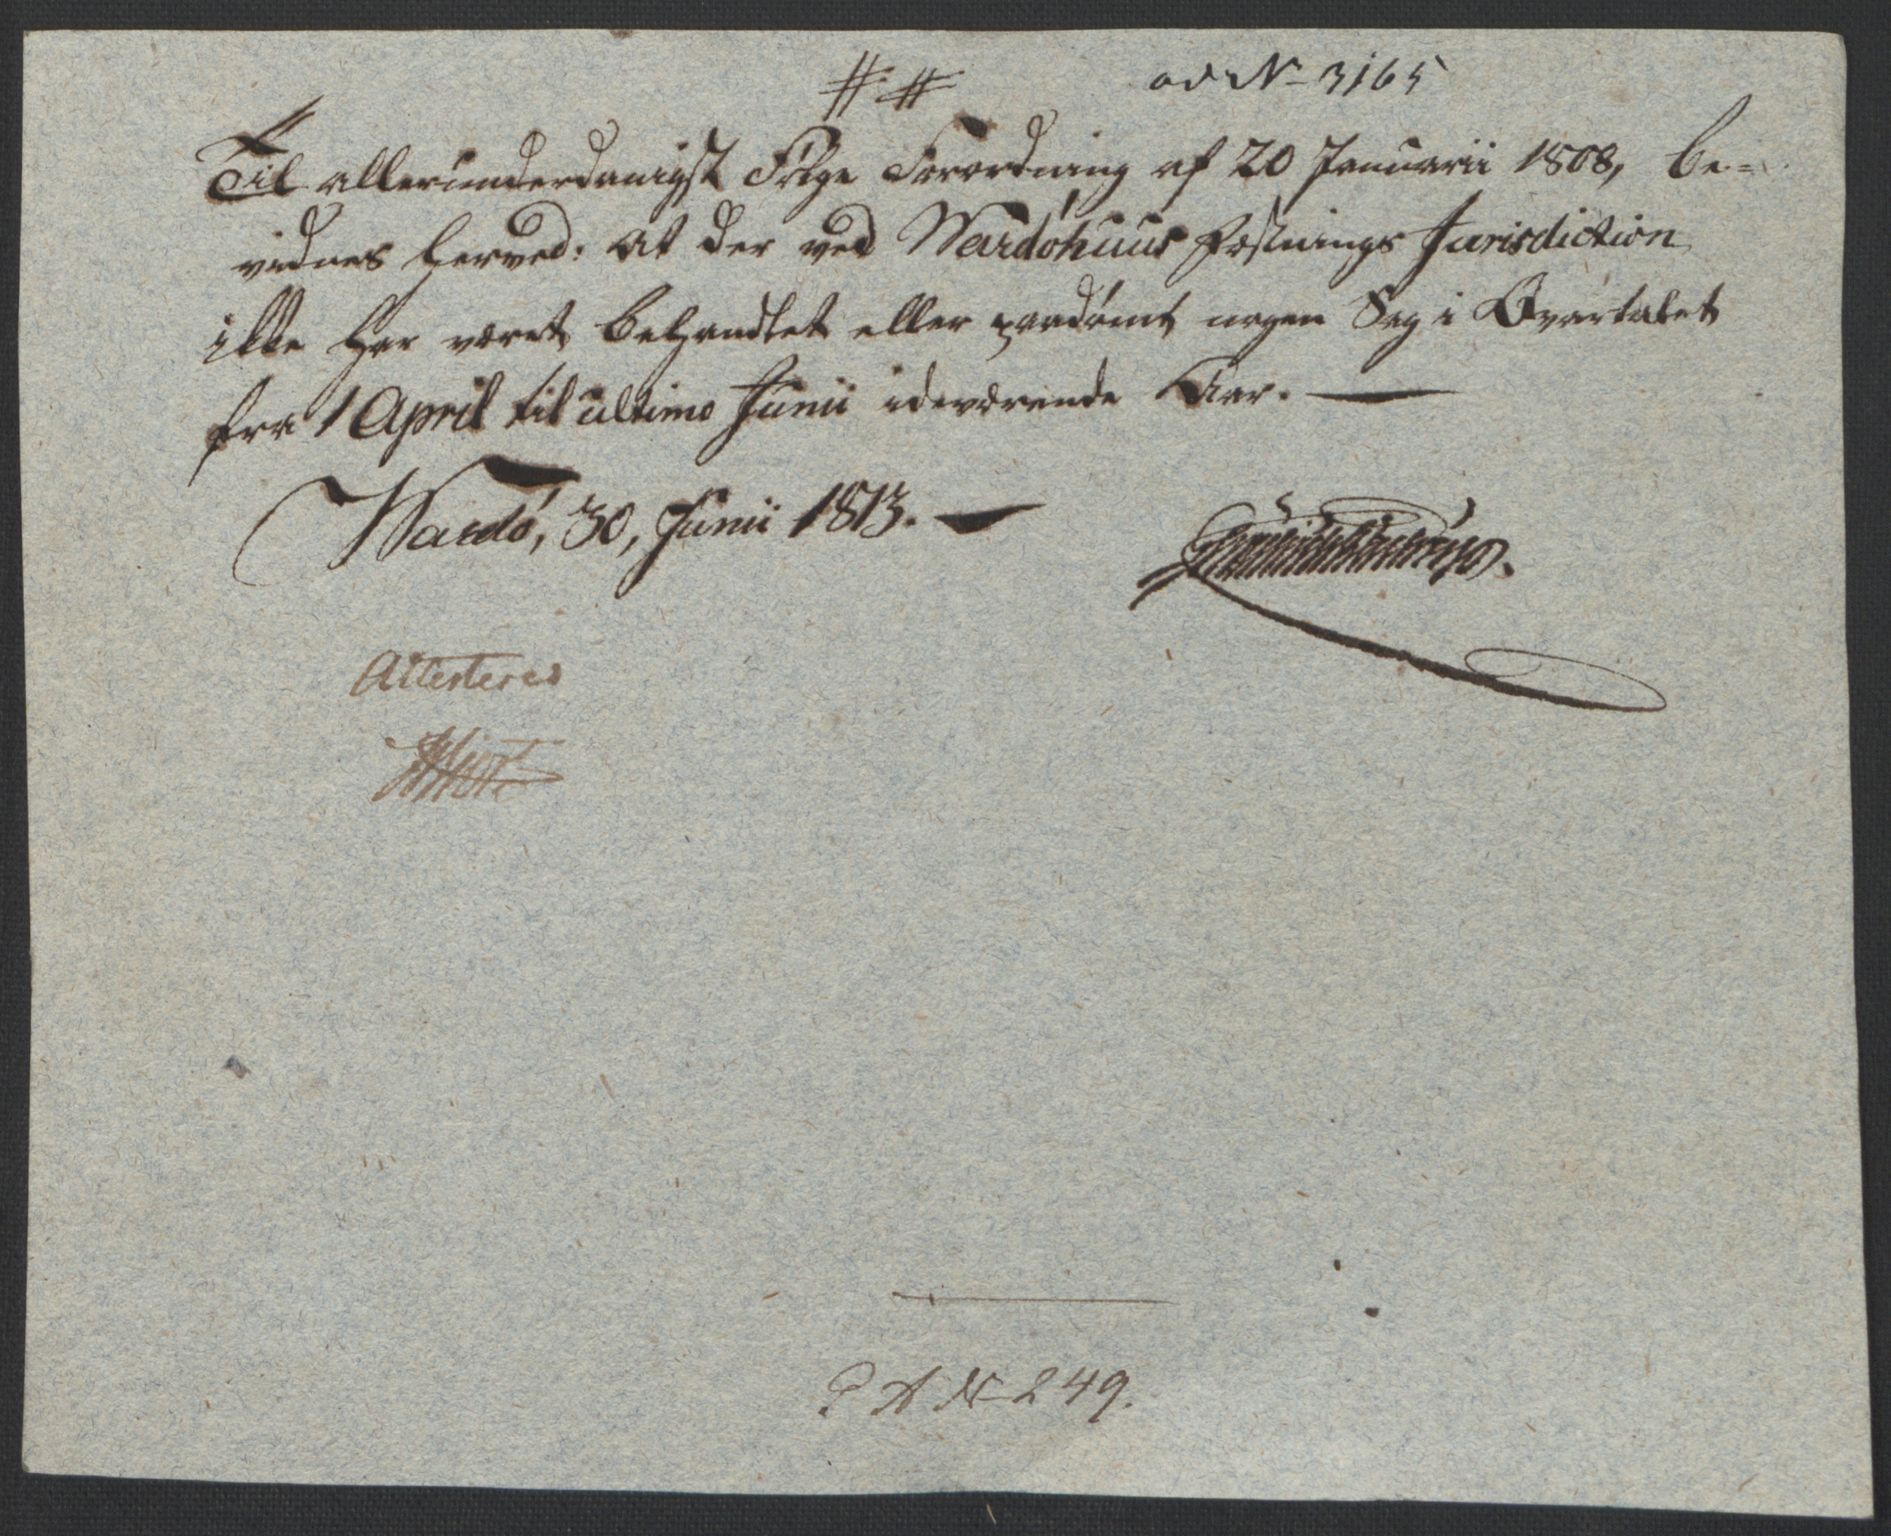 ad No 3165
Til allerunderdanigst Følge Forordning af 20 Januarii 1808, be=
vidnes herved: at der ved Wardøhuus Fæstnings Jurisdiction
ikke har været behandlet eller paadømt nogen Sag i Qvartalet
fra 1 April til ultimo Junii ideværende Aar.
Wardø, 30, Junii 1813.
Attesteres
No 249.